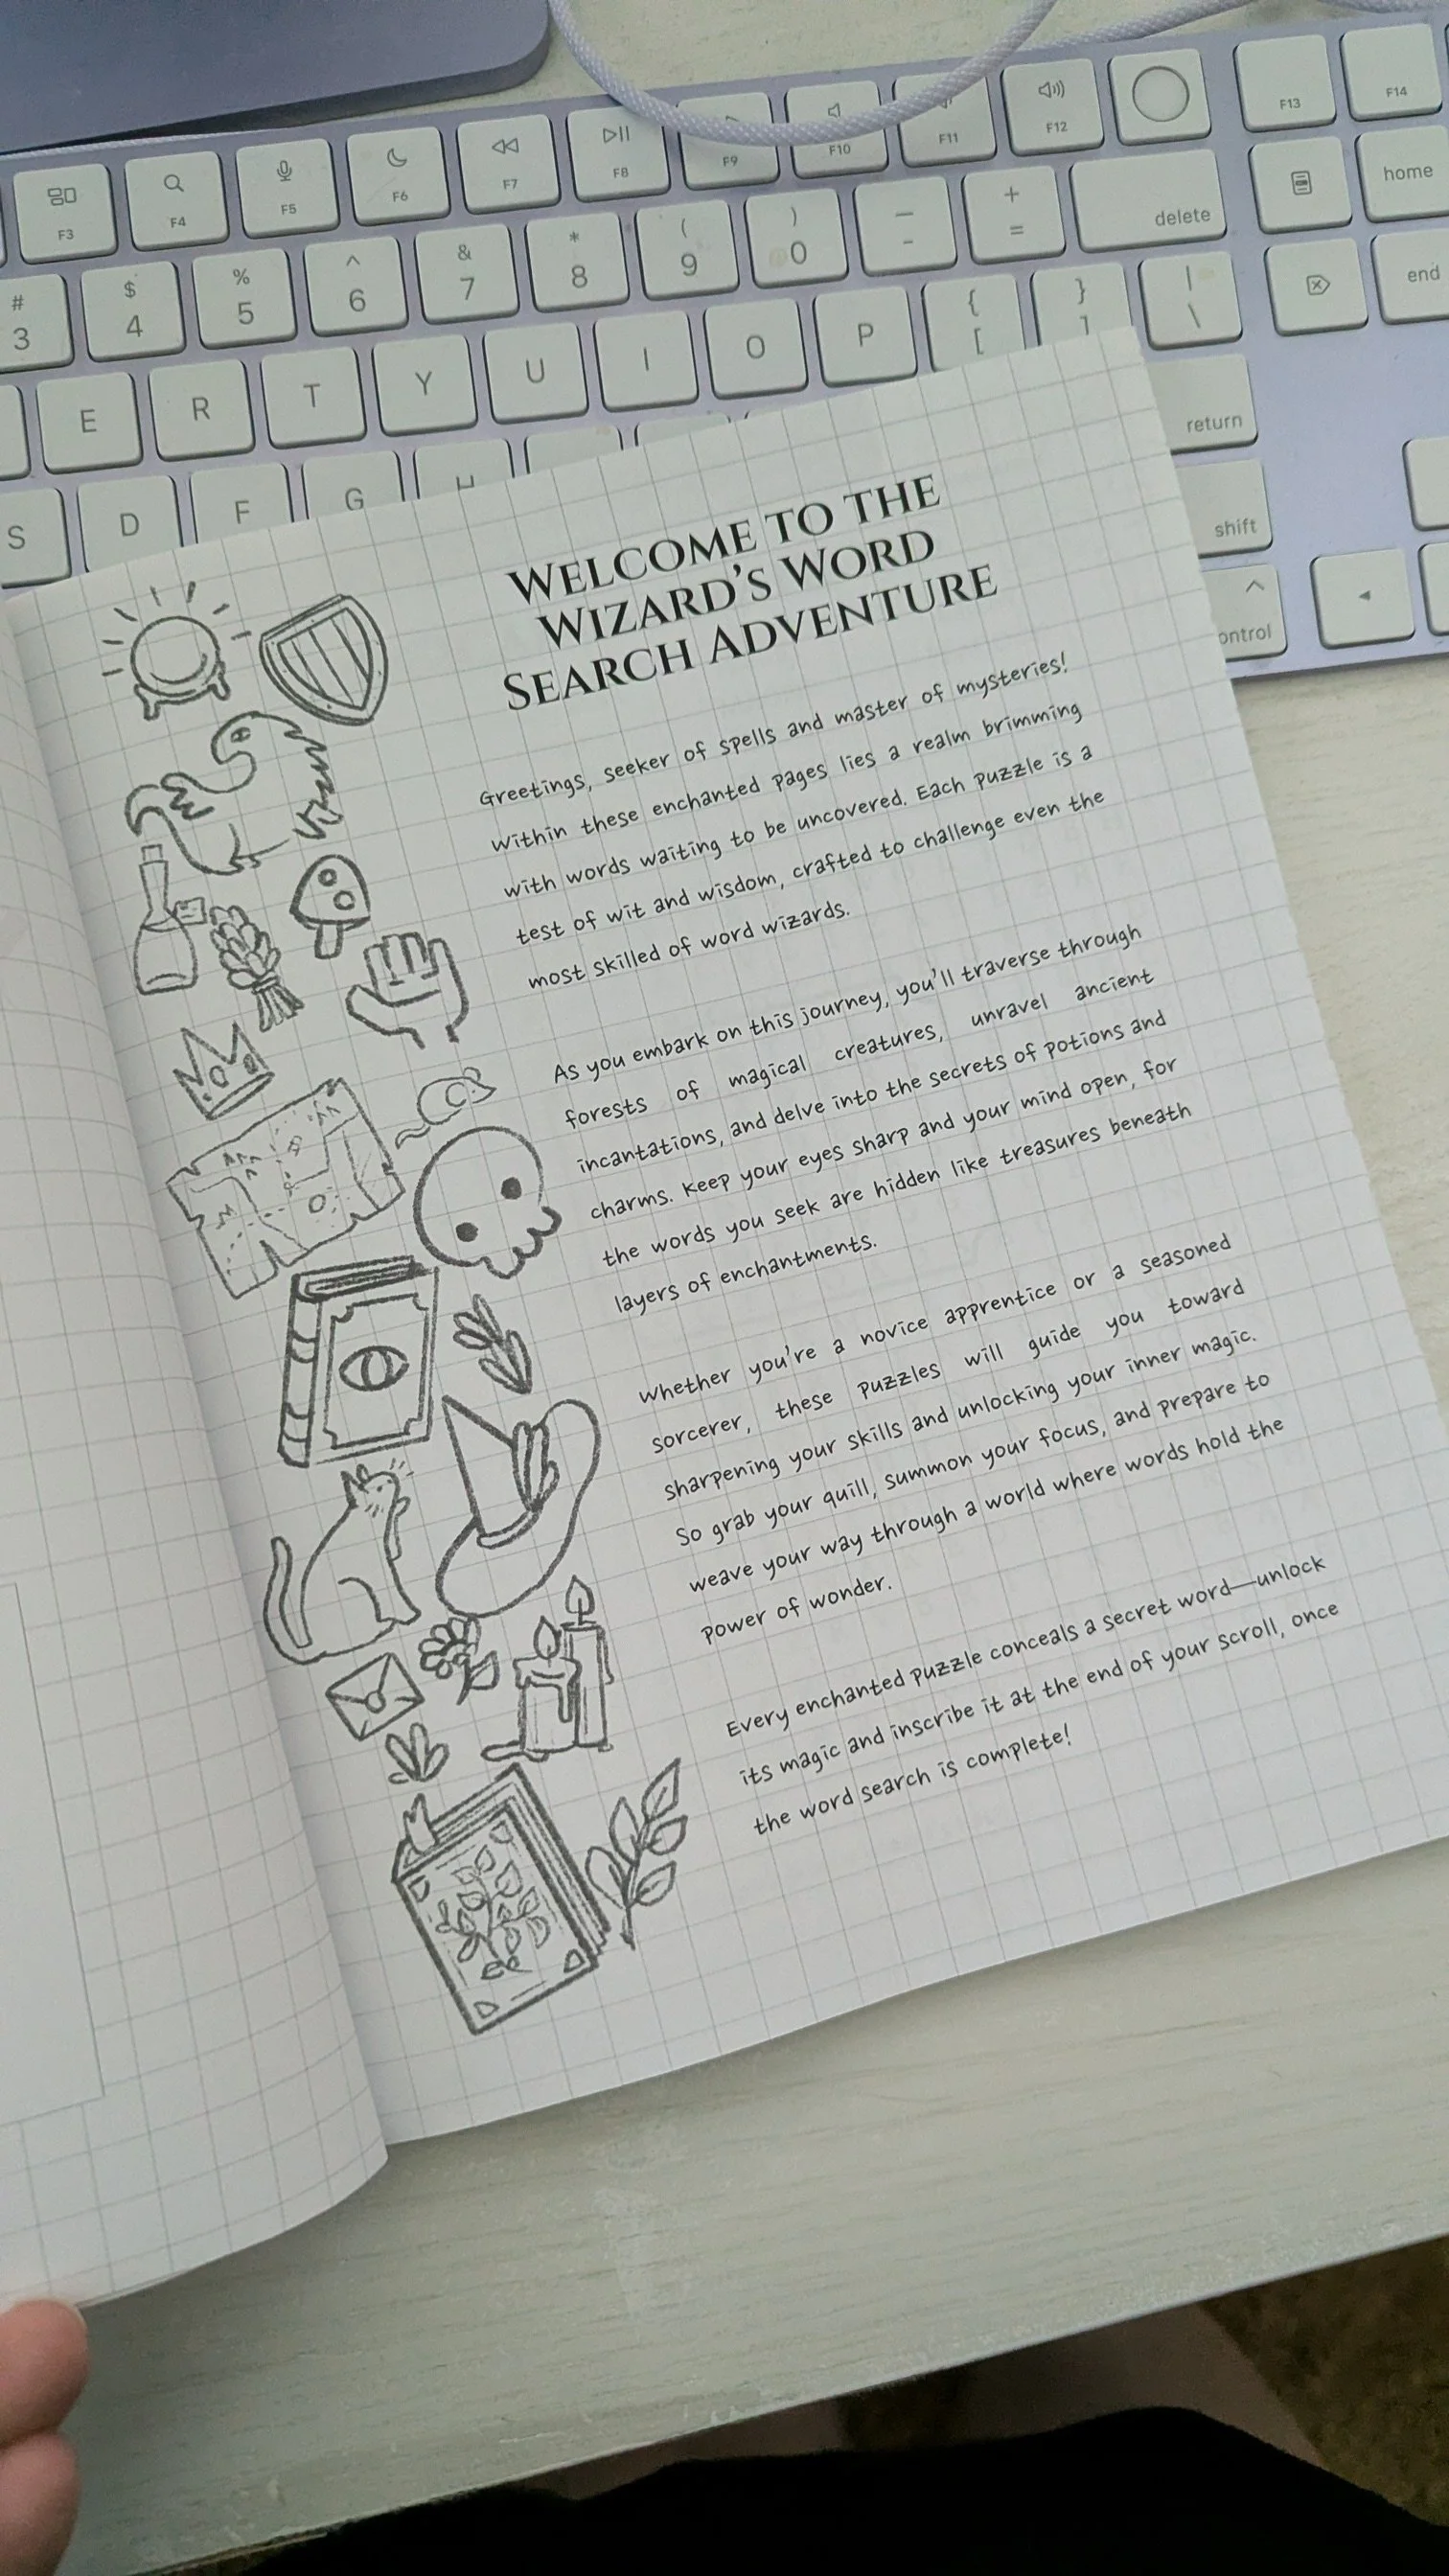 F3
F4
F5
F6
F7
F8
F9
F10
F11
F12
F13
F14
#
3
$
4
%
5
^
6
&
7
*
8
(
9
)
0
—
-
+
=
delete
home
E
R
T
Y
U
I
O
P
{
[
}
]
|
\
end
return
S
D
F
G
H
shift
^
ontrol
WELCOME TO THE
WIZARD'S WORD
SEARCH ADVENTURE
Greetings, seeker of spells and master of mysteries!
Within these enchanted pages lies a realm brimming
with words waiting to be uncovered. Each puzzle is a
test of wit and wisdom, crafted to challenge even the
most skilled of word wizards.
As you embark on this journey, you'll traverse through
forests of magical creatures, unravel ancient
incantations, and delve into the secrets of potions and
charms. Keep your eyes sharp and your mind open, for
the words you seek are hidden like treasures beneath
layers of enchantments.
Whether you're a novice apprentice or a seasoned
sorcerer, these puzzles will guide you toward
sharpening your skills and unlocking your inner magic.
So grab your quill, summon your focus, and prepare to
weave your way through a world where words hold the
power of wonder.
Every enchanted puzzle conceals a secret word—unlock
its magic and inscribe it at the end of your scroll, once
the word search is complete!